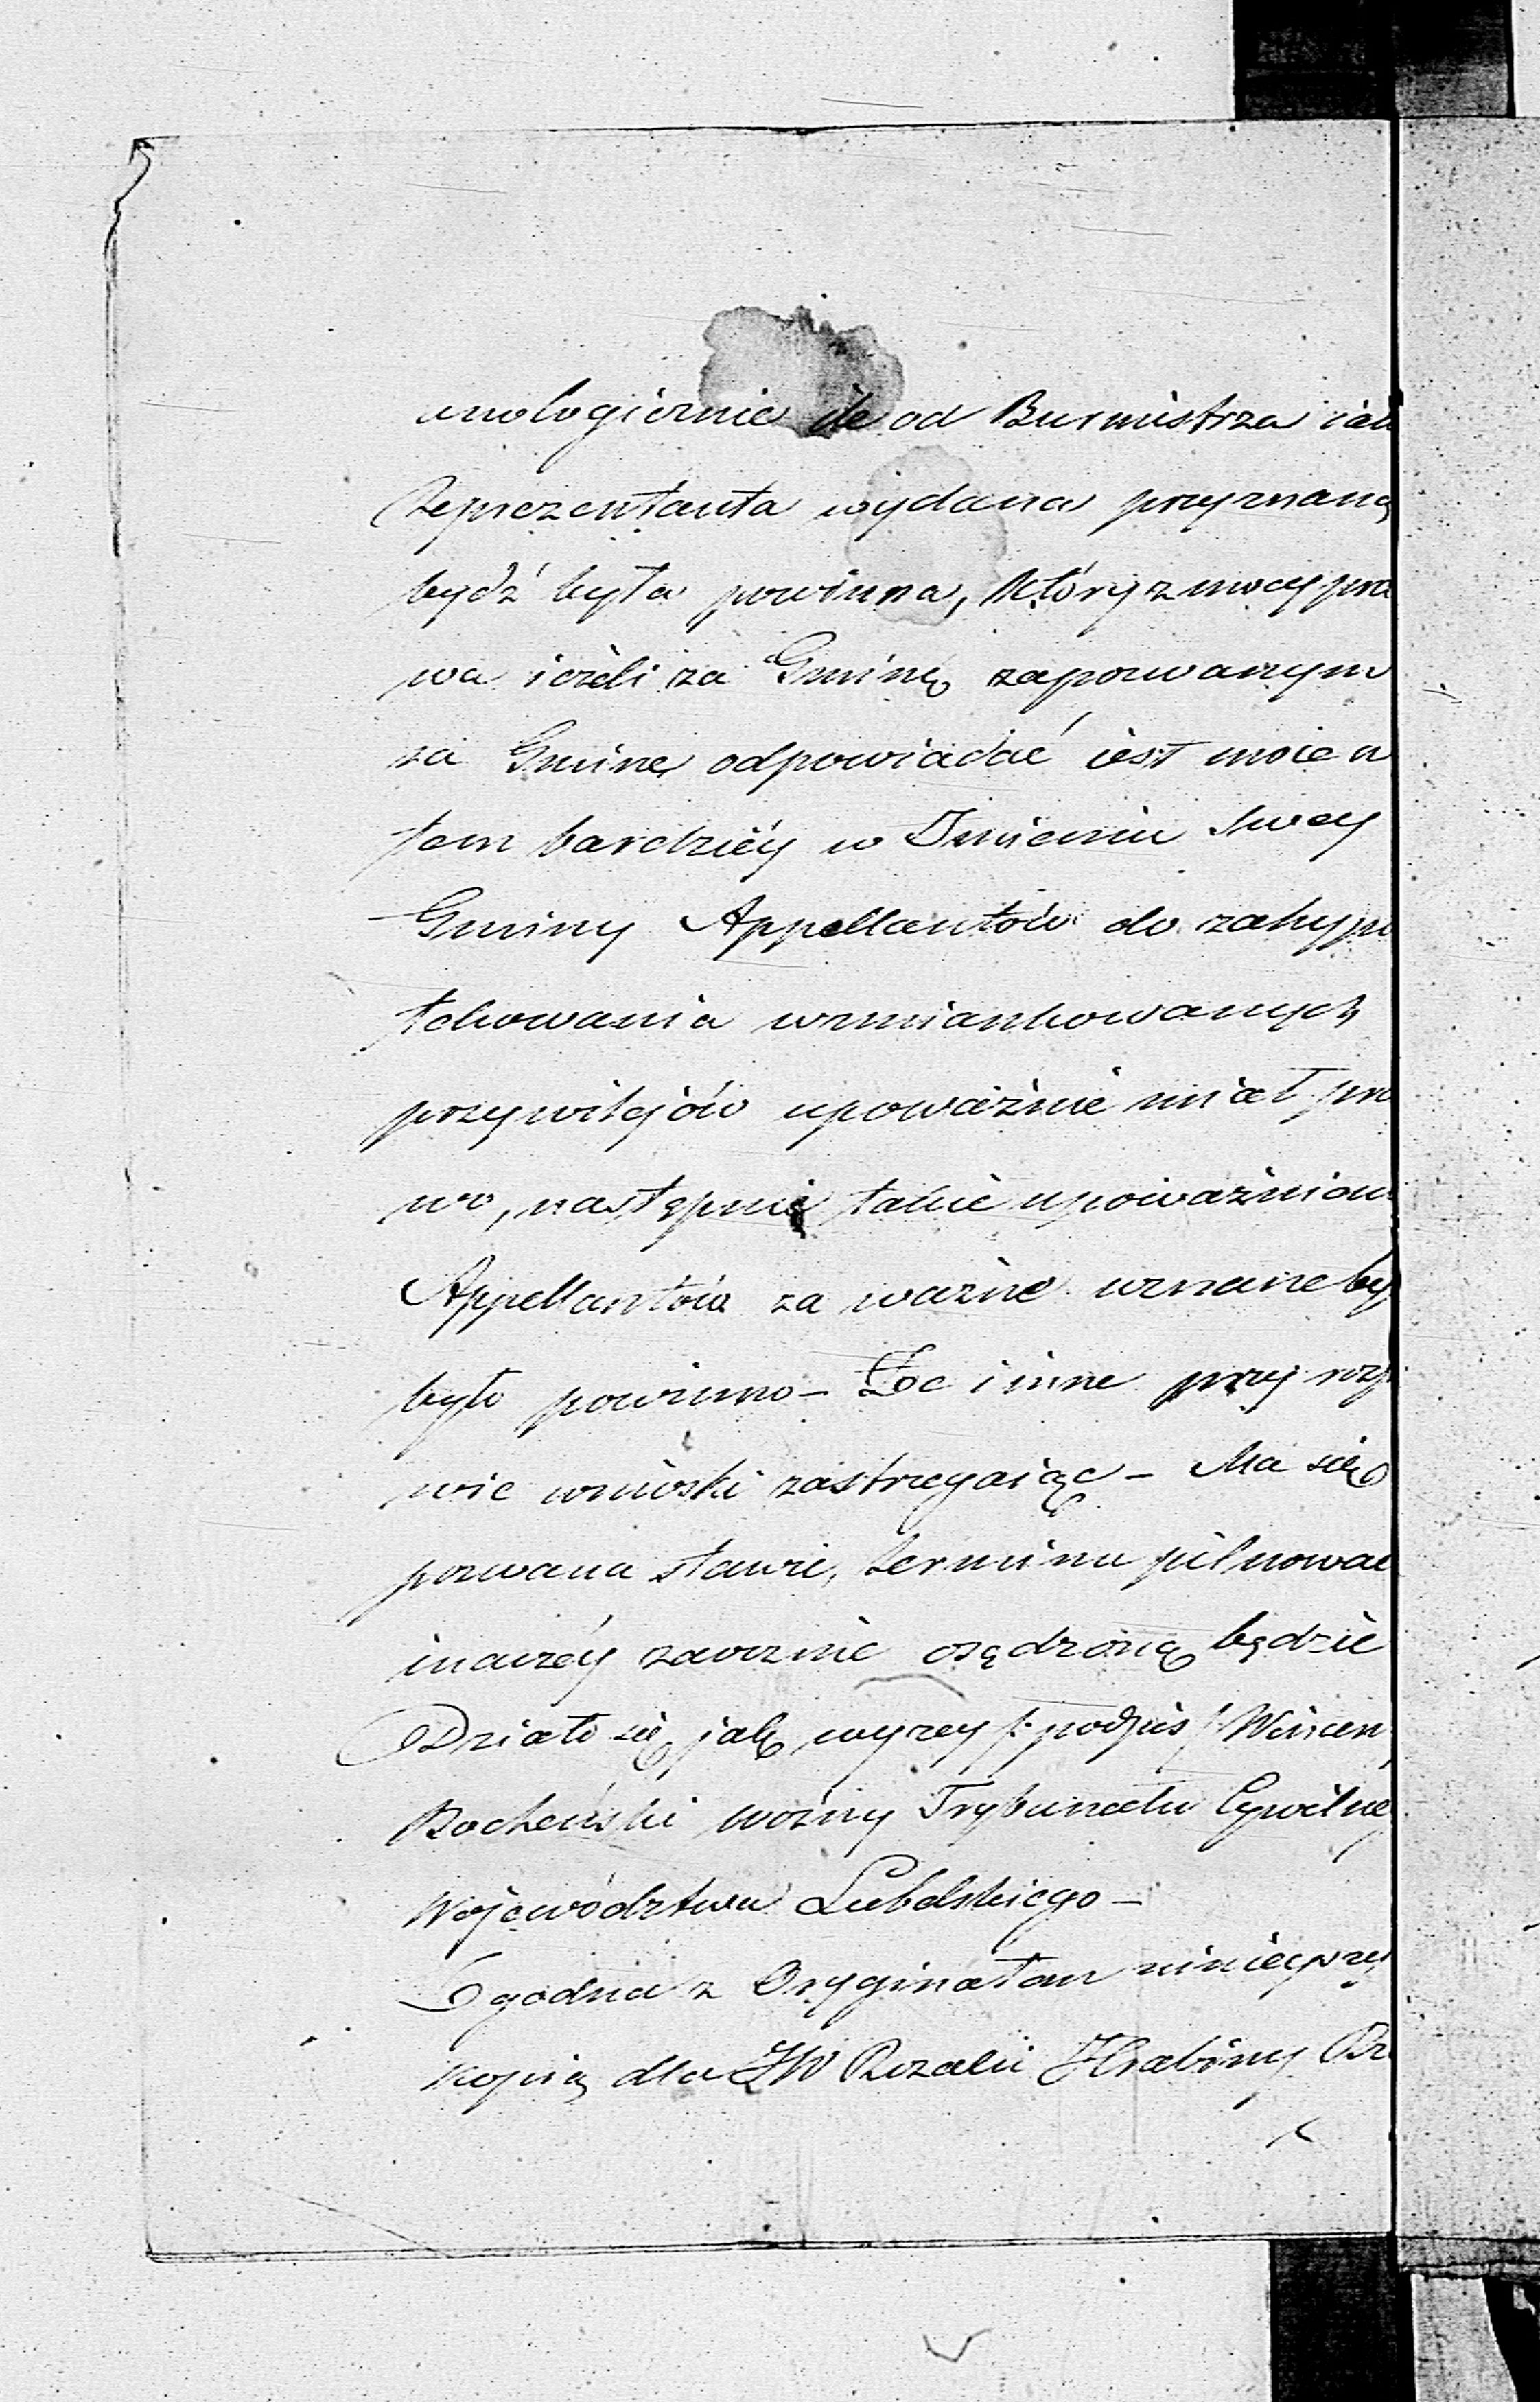 analogicznie ile od Burmistrza iak
Reprezentanta wydana przyznaną
bydź była powinna, który z mocy pra
wa ieżeli za Gminę zapozwanym
za Gminę odpowiadać iest mocen
tem bardziéy w Imieniu Swey
Gminy Appellantów do zahypo
tekowania wzmiankowanych
przywilejów upoważnić miał pra
wo, następnie takie upoważnien
Appellantów za ważne uznane by
było powinno – Zoc i inne przy rozp
wie wnioski zastrzegaiąc – Ma się
pozwana stawić, terminu pilnować
inaczéy zaocznie osądzoną będzie
Działo się jak wyżey /: podpis /: Wincen
Bocheński woźny Trybunału Cywilne
Województwa Lubelskiego –
Zgodna z Oryginałem ninieyszą
kopią dla JW Rozalii Hrabiny Br